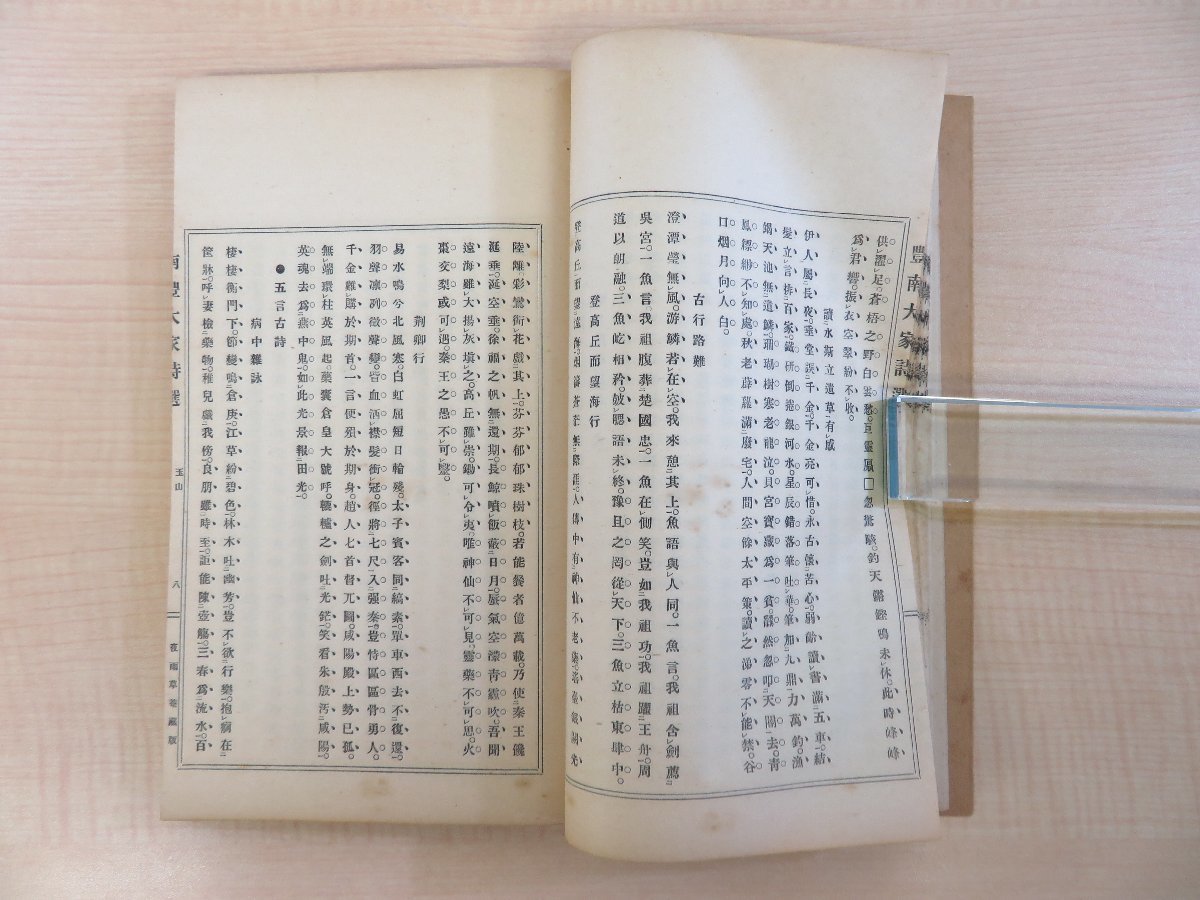 豐南大家詩選
供濯足。蒼梧之野白雲愁。亘靈鳳□忽驚駭。鈞天鏘鏗鳴未休。此時峰峰
爲君響。振衣空翠紛不收。
讀水斯立遺草有感
伊人屬長夜。垂堂誤千金。千金亮可惜。永古懷苦心。弱齡讀書滿五車。結
髮立言排百家。鐵研倒捲銀河水。星辰錯落筆吐華。筆加九鼎力萬鈞。漁
竭天池無遺鱗。珊瑚樹寒老龍泣。貝宮寶藏爲一貧。翳然忽叩天閽去。靑
鳳縹緲不知處。秋老薜蘿滿廢宅。人間空餘太平策。讀之涕零不能禁。谷
口烟月向人白。
古行路難
澄潭瑩無風。游鱗若在空。我來憩其上。魚語與人同。一魚言。我祖含劍薦
吳宮。一魚言我祖腹葬楚國忠。一魚在側笑。豈如我祖功。我祖躍王舟。周
道以朗融。三魚屹相矜。皷腮語未終。豫且之罔從天下。三魚立枯東肆中。
登高丘而望海行
登高丘而望遠海。
陸離。彩鸞銜花戲其上。芬芬郁郁珠樹枝。若能餐者億萬載。乃使秦王饞
涎垂。涎空垂。徐福之帆無還期。長鯨噴飯蔽日月。蜃氣空濛靑霞吹。吾聞
遠海雖大揚灰塡之。高丘雖崇鋤可令夷。唯神仙不可見。靈藥不可思。火
棗交梨或可遇。秦王之愚不可毉。
荆卿行
易水鳴兮北風寒。白虹屈短日輪殘。太子賓客同縞素。單車西去不復還。
羽聲凛冽徵聲變。冒血洒襟髮衝冠。徑將七尺入强秦。豈恃區區骨勇人。
千金難購於期首。一言便殞於期身。趙人匕首督亢圖。咸陽殿上勢已孤。
無端環柱英風起。藥囊倉皇大號呼。轆轤之劍吐光鋩。笑看朱殷汚咸陽。
英魂去爲燕中鬼。如此光景報田光。
●五言古詩
病中雜詠
棲棲衡門下。節變鳴倉庚。江草紛碧色。林木吐幽芳。豈不欲行樂。抱痾在
筐牀。呼妻檢藥物。稚兒戲我傍。良朋雖時至。詎能陳壺觴。三春爲流水。百
南豐大家詩選
玉山
八
夜雨草菴藏版